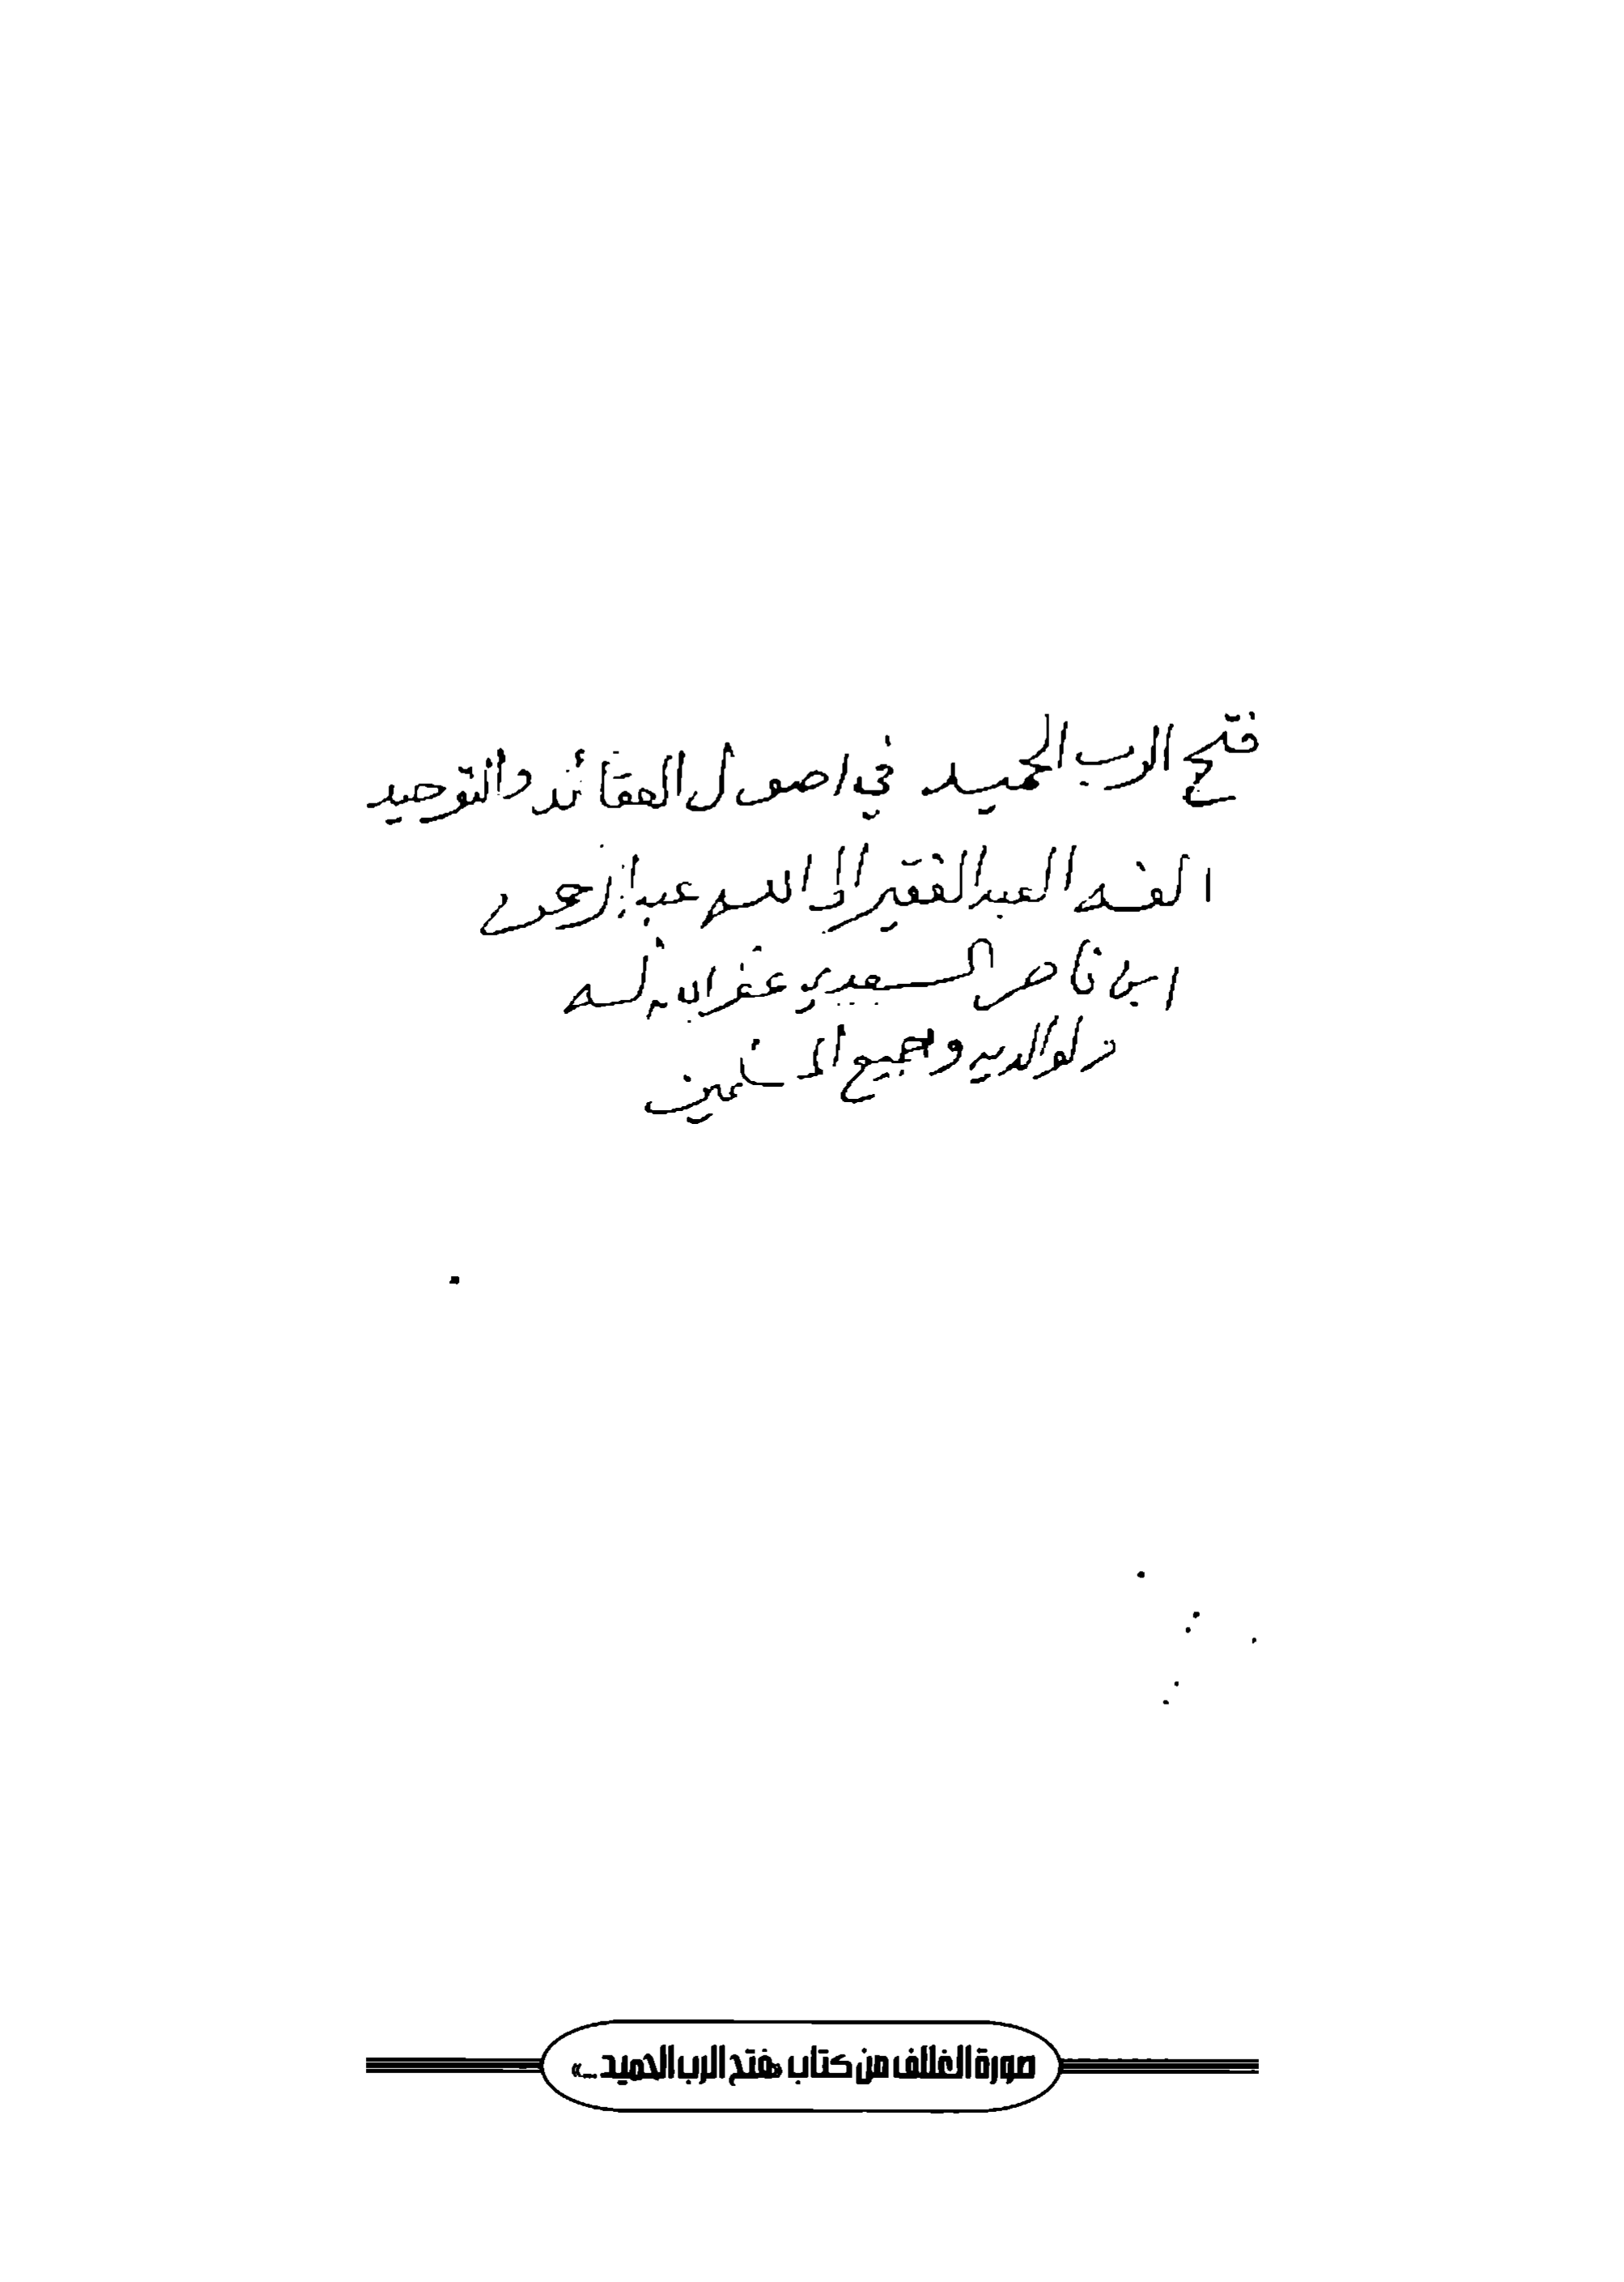 فتح الرب الحميد في اصول العقائد والتوحيد
الفه العبد الفقير الى الله عبد الرحمن
ابن ناصر السعدي غفر الله له
ولوالديه وجميع المسلمين
صورة الغلاف من كتاب «فتح الرب الحميد...»